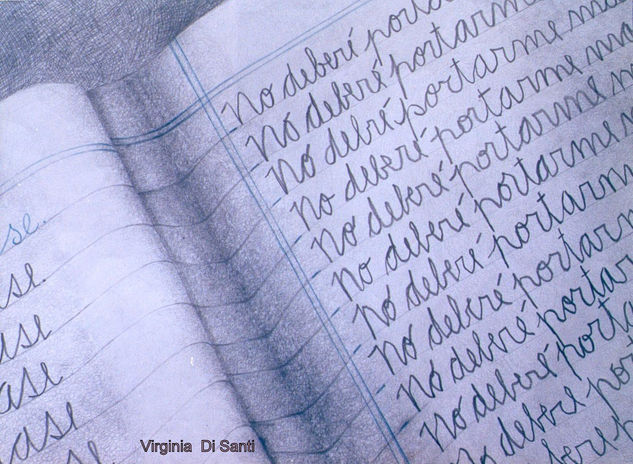 se.
se.
ase
ase
ase
se
No deberé porta
No deberé portarme
No debré portarme ma
No deberé portarme ma
No deberé portarme m
No deberé portarme
No deberé portarme
No deberé portarm
No deberé portar
No deberé porta
No deberé por
beré p
Virginia Di Santi